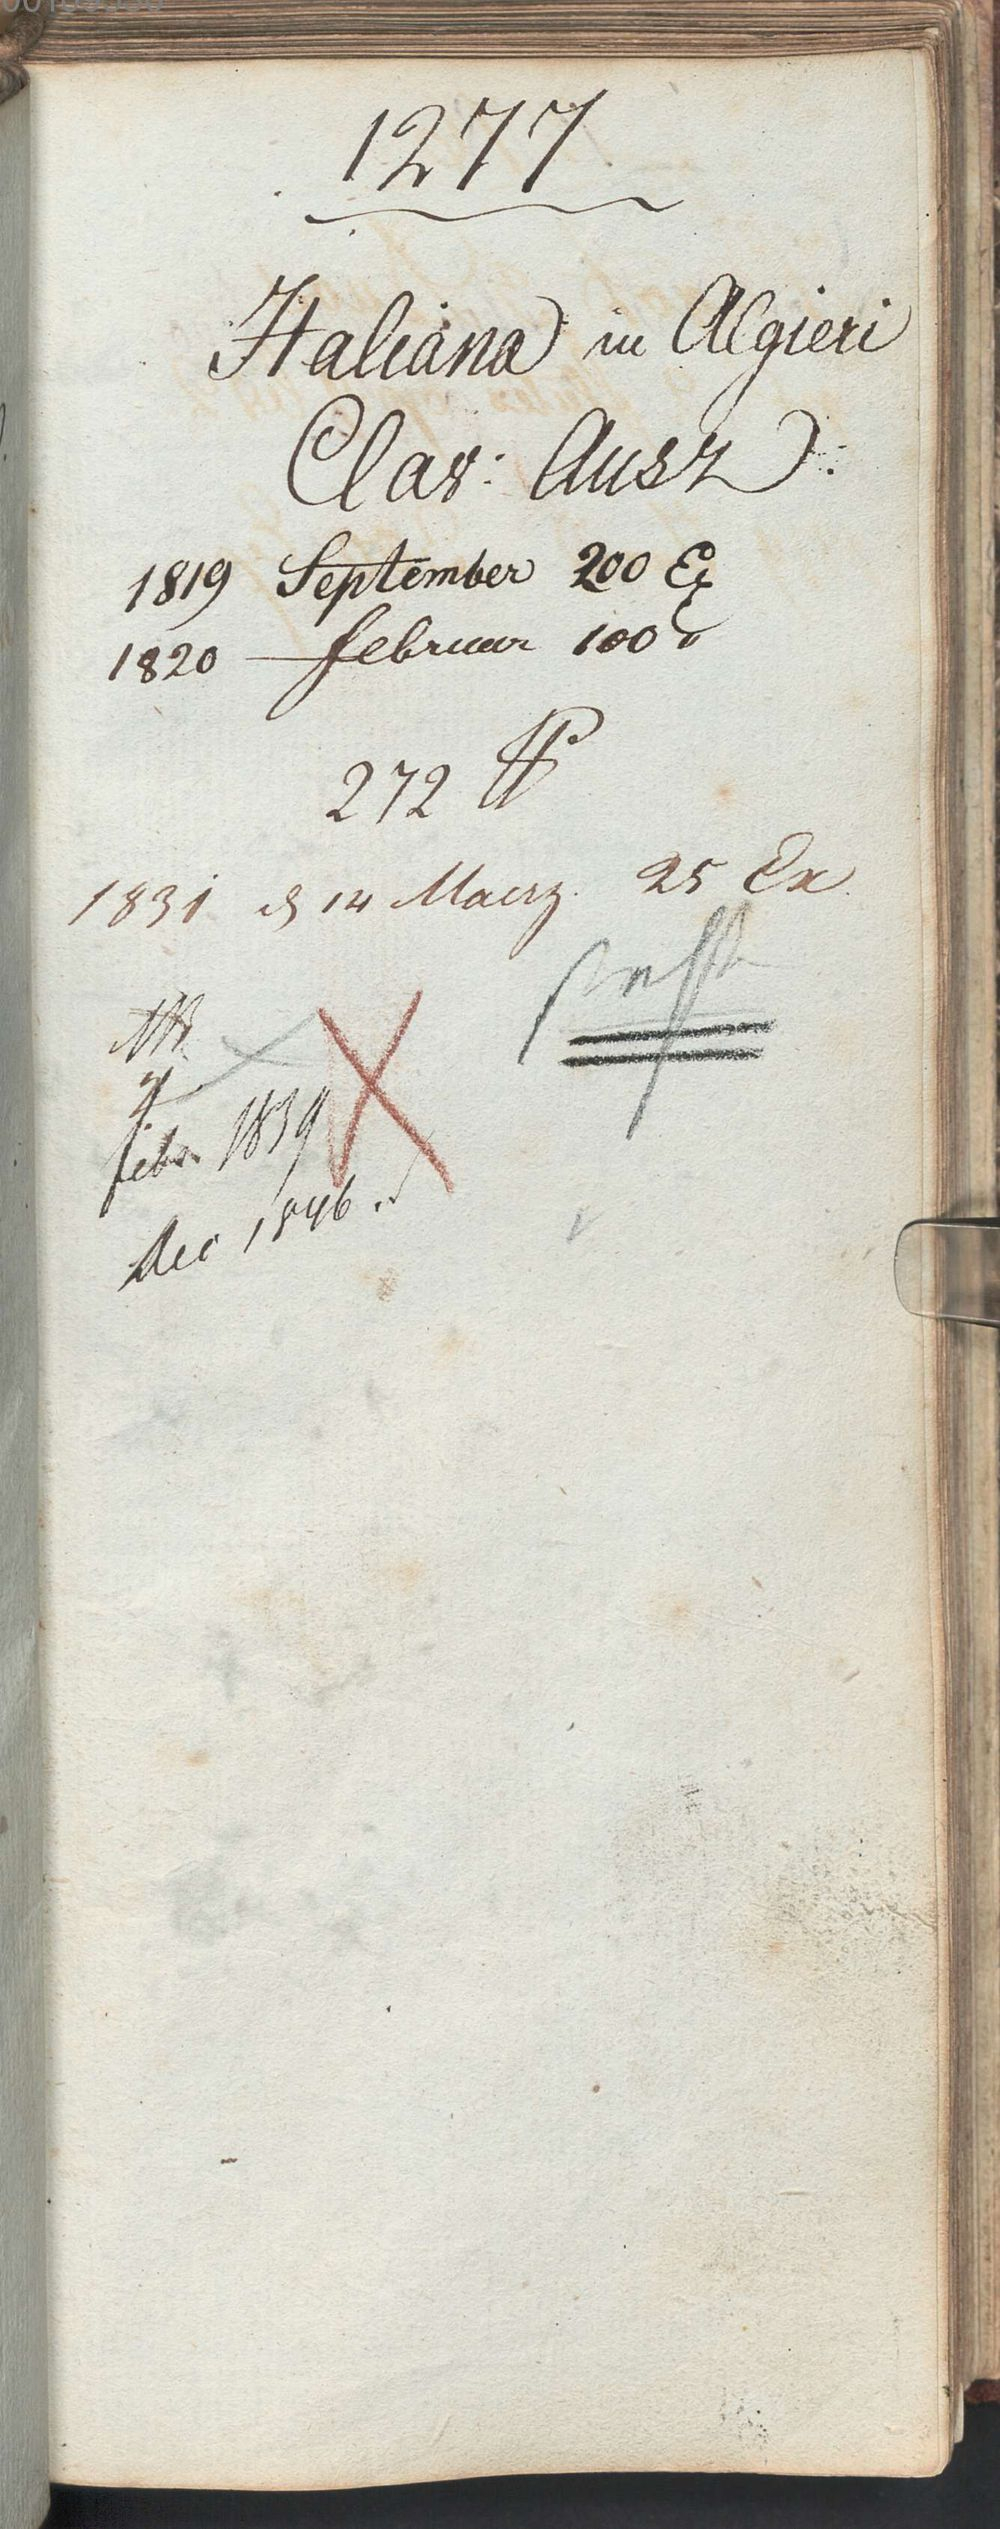 1277
Italiana in Algieri
Clav: Ausz:
1819 September 200 Ex
1820 – februar 100 "
272
1831 d 14 Maerz. 25 Ex
febr. 1839
dec 1846.